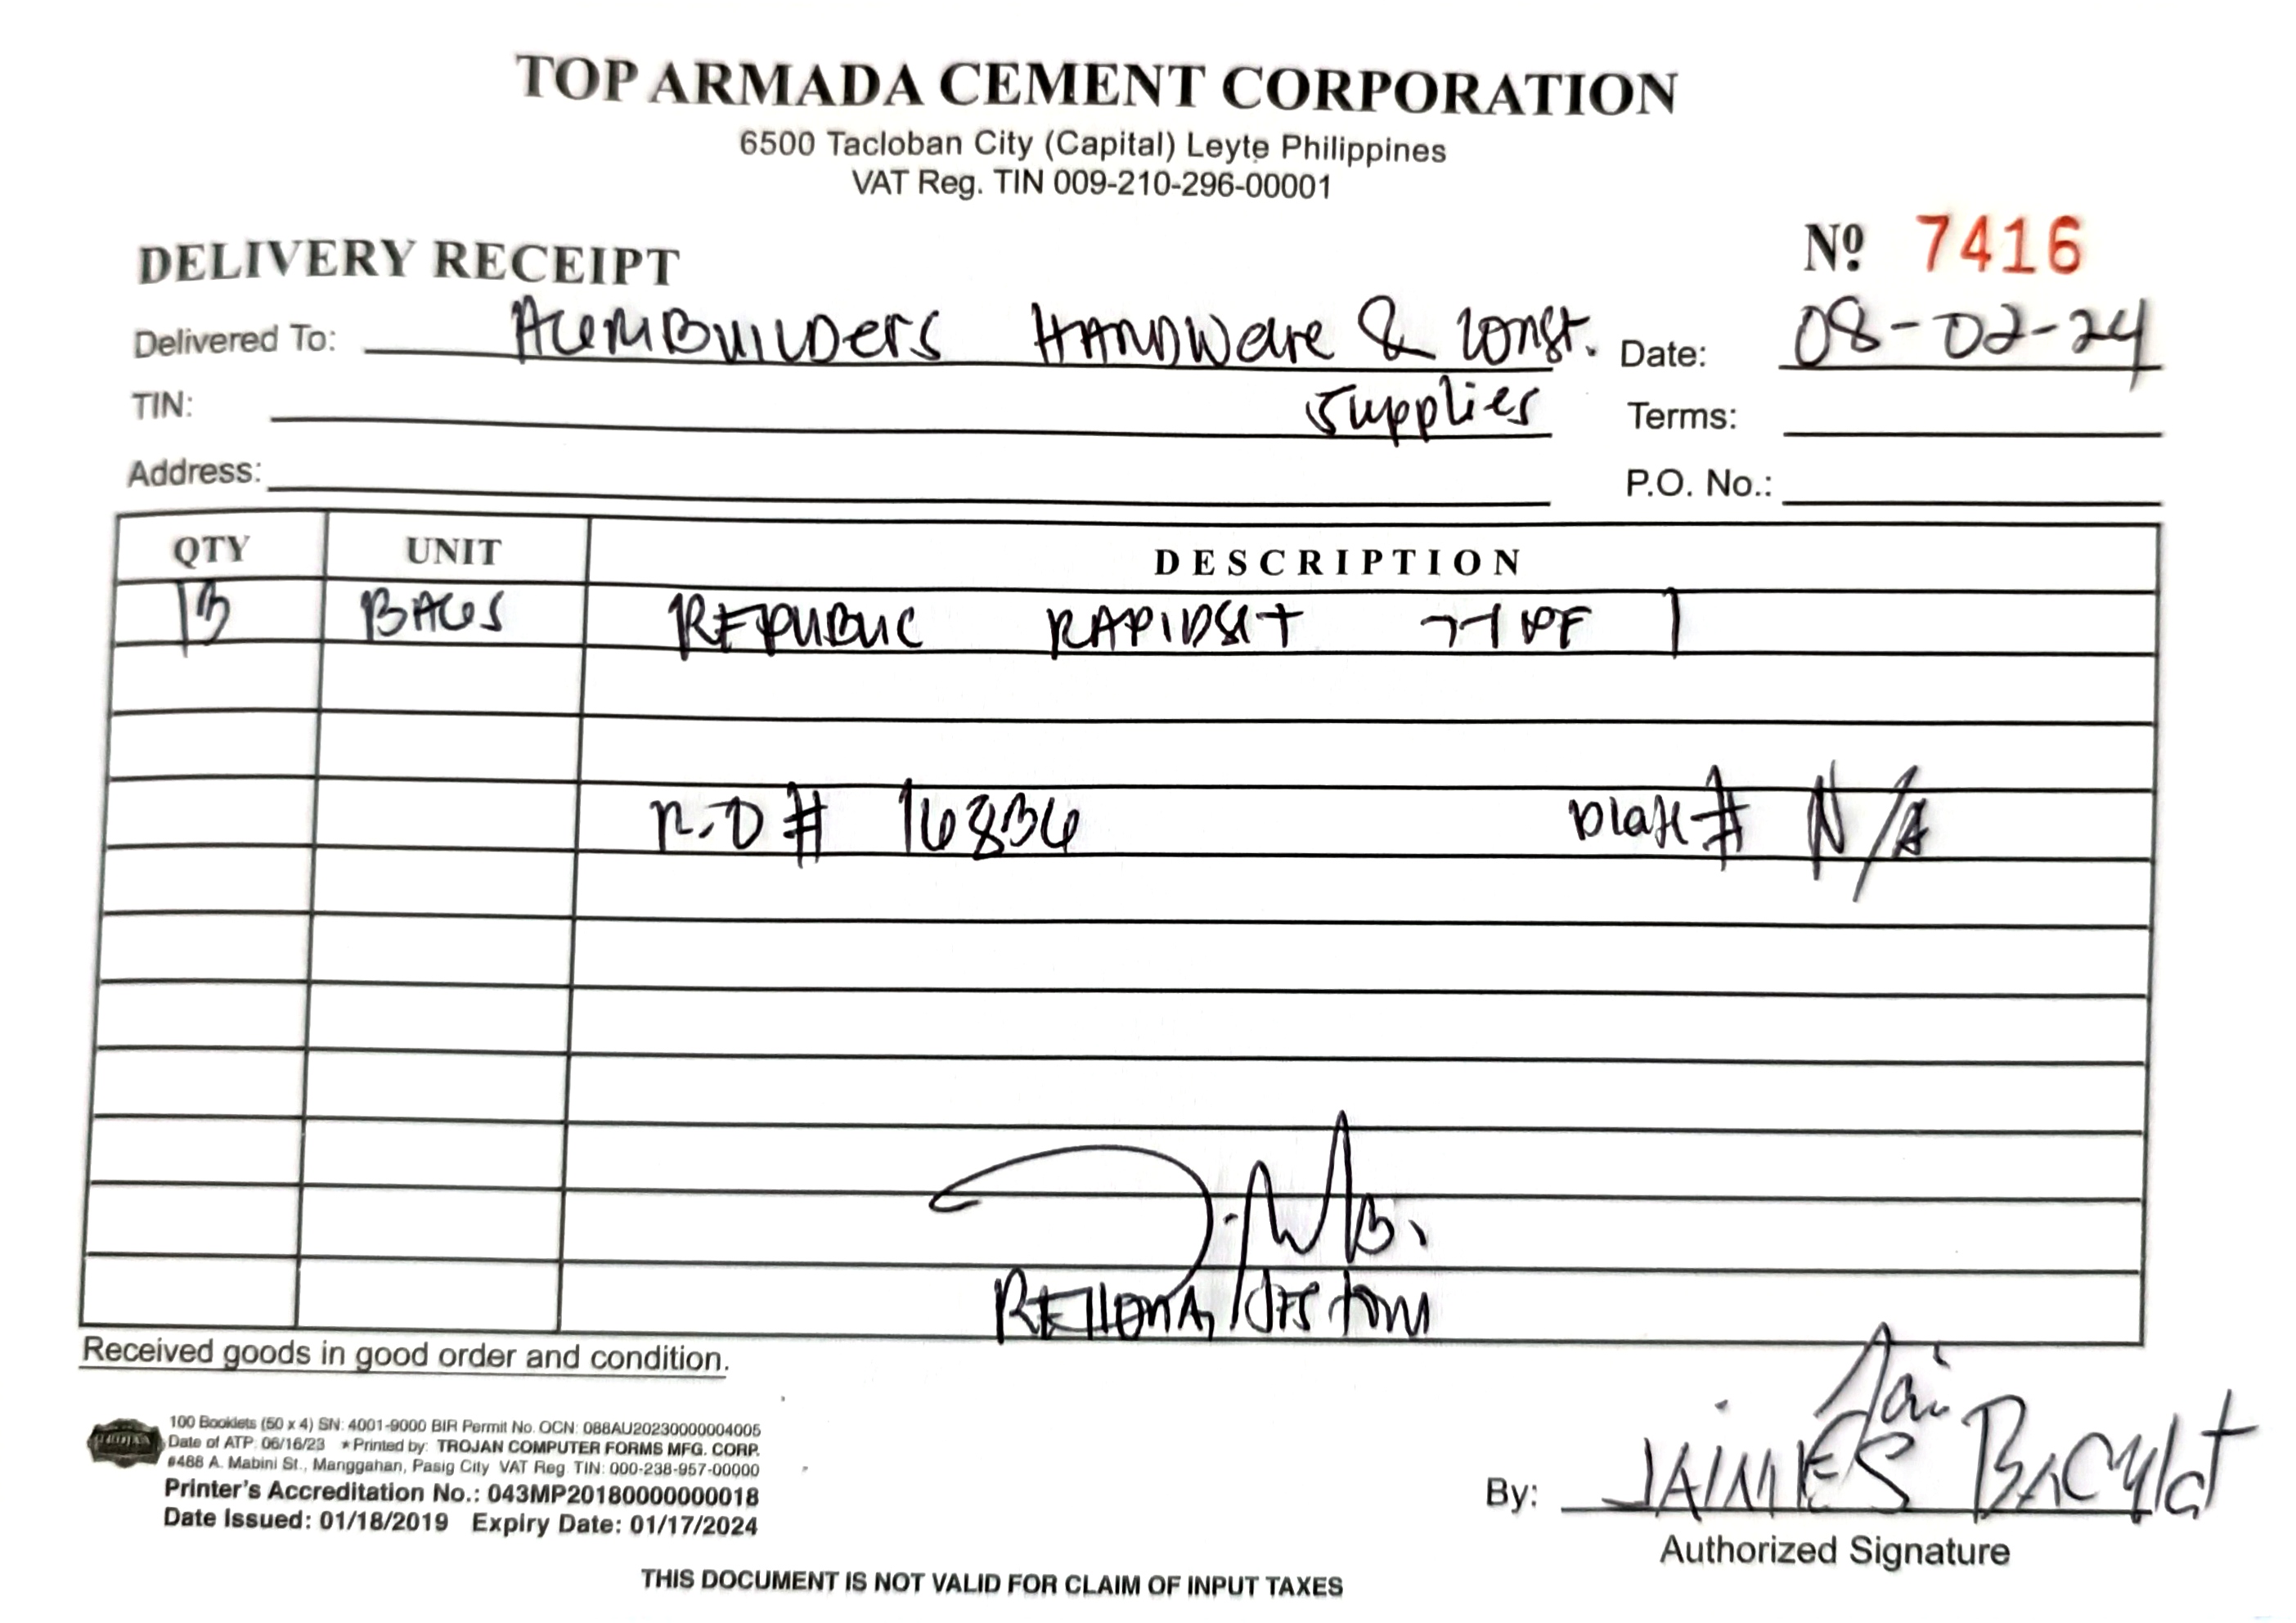 TOP ARMADA CEMENT CORPORATION
6500 Tacloban City (Capital) Leyte Philippines
VAT Reg. TIN 009-210-296-00001
DELIVERY RECEIPT
Nº 7416
Delivered To: ACEMBUILDERS HARDWare & Const. Date: 08-02-24
TIN: Supplies Terms:
Address: P.O. No.:
QTY UNIT DESCRIPTION
13 BAGS REPUBLIC RAPIDSET TYPE 1
16836 N/A
Received goods in good order and condition.
100 Booklets (50 x 4) SN: 4001-9000 BIR Permit No. OCN: 088AU20230000004005
Date of ATP: 06/16/23 ★Printed by: TROJAN COMPUTER FORMS MFG. CORP.
#488 A. Mabini St., Manggahan, Pasig City VAT Reg. TIN: 000-238-957-00000
Printer's Accreditation No.: 043MP20180000000018
Date Issued: 01/18/2019 Expiry Date: 01/17/2024
By: JAIMES
Authorized Signature
THIS DOCUMENT IS NOT VALID FOR CLAIM OF INPUT TAXES